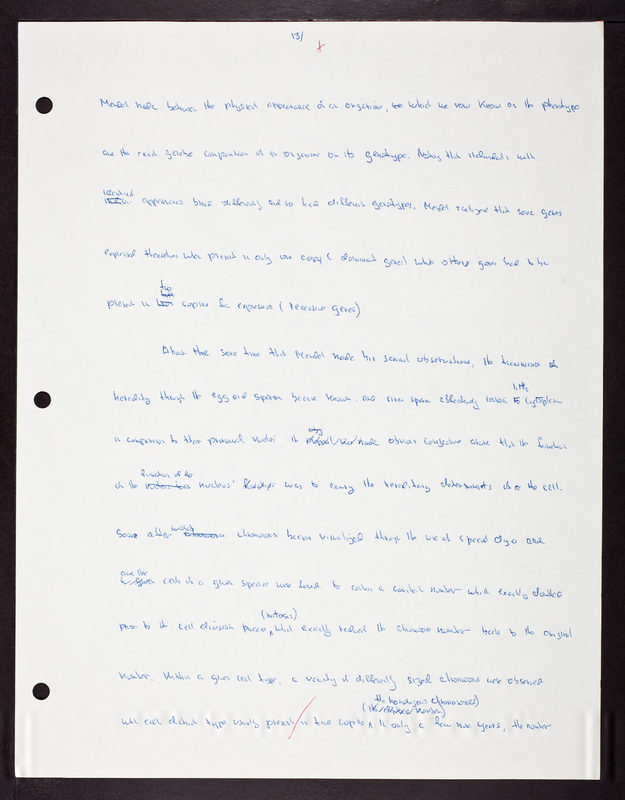 13/
Mendel made between the physical appearance of an organism, which we now know as its phenotype
and the exact genetic composition of an organism or its genotype. Noting that
identical appearances differently and so had different genotypes, Mendel realized that some genes
expressed themselves when present in only one copy (dominant genes) while others genes had to be
present in two copies for expression (recessive genes)
About the same time that Mendel made his seminal observations, the transmission of
heredity through the egg and sperm became known. and since sperm effectively contain little cytoplasm
in comparison to their nuclei. it made obvious conjecture that the function
of the nucleus' function was to carry the hereditary determinants of the cell.
Soon after chromosomes became visualized through the use of special dyes and
cells of a given species were found to contain a constant number which exactly doubled
prior to the cell division process (mitosis) which exactly reduced the chromosome number back to the original
number. Within a given cell type, a variety of differently sized chromosomes were observed
with each distinct type usually present in two copies (the homologous chromosomes) In only a few more years, the number